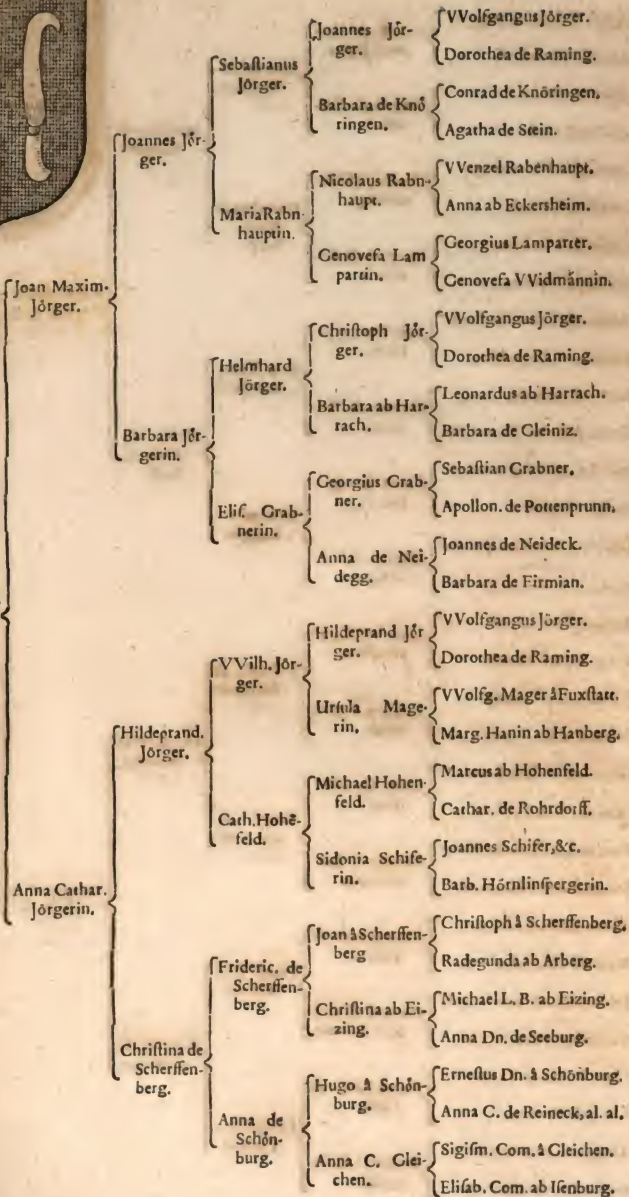 Joan Maxim.
Jörger.
Anna Cathar.
Jörgerin.
Joannes Jör-
ger.
Barbara Jör-
gerin.
Hildeprand.
Jörger.
Chriſtina de
Scherffen-
berg.
Sebaſtianus
Jörger.
Maria Rabn-
hauptin.
Helmhard
Jörger.
Eliſ. Grab-
nerin.
VVilh. Jör-
ger.
Cath. Hohē-
feld.
Frideric. de
Scherffen-
berg.
Anna de
Schön-
burg.
Joannes Jör-
ger.
Barbara de Knö
ringen.
Nicolaus Rabn-
haupt.
Genovefa Lam
partin.
Chriſtoph Jör-
ger.
Barbara ab Har-
rach.
Georgius Grab-
ner.
Anna de Nei-
degg.
Hildeprand Jör
ger.
Urſula Mage-
rin.
Michael Hohen-
feld.
Sidonia Schife-
rin.
Joan à Scherffen-
berg
Chriſtina ab Ei-
zing.
Hugo à Schön-
burg.
Anna C. Glei-
chen.
VVolfgangus Jörger.
Dorothea de Raming.
Conrad de Knöringen.
Agatha de Stein.
VVenzel Rabenhaupt.
Anna ab Eckersheim.
Georgius Lamparter.
Genovefa VVidmännin.
VVolfgangus Jörger.
Dorothea de Raming.
Leonardus ab Harrach.
Barbara de Gleiniz.
Sebaſtian Grabner.
Apollon. de Pottenprunn.
Joannes de Neideck.
Barbara de Firmian.
VVolfgangus Jörger.
Dorothea de Raming.
VVolfg. Mager à Fuxſtatt.
Marg. Hanin ab Hanberg.
Marcus ab Hohenfeld.
Cathar. de Rohrdorff.
Joannes Schifer, &c.
Barb. Hörnlinſpergerin.
Chriſtoph à Scherffenberg.
Radegunda ab Arberg.
Michael L. B. ab Eizing.
Anna Dn. de Seeburg.
Erneſtus Dn. à Schönburg.
Anna C. de Reineck, al. al.
Sigiſm. Com. à Gleichen.
Eliſab. Com. ab Iſenburg.